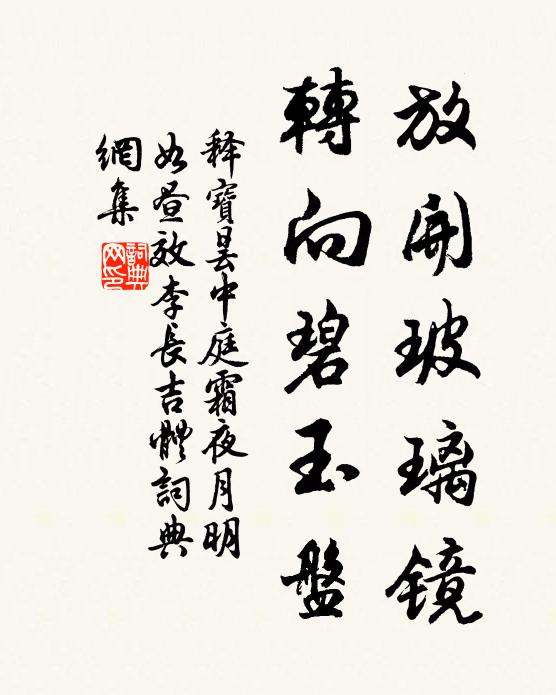 放開玻璃鏡
轉向碧玉盤
释寶曇中庭霜夜月明
如昼效李長吉體詞典
網集
詞典網印